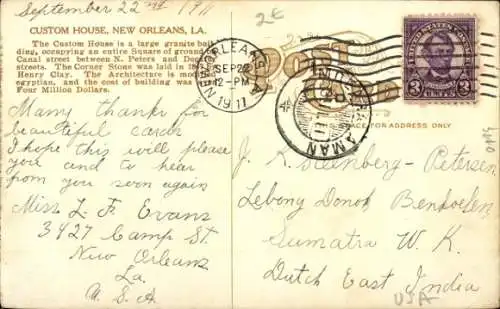 September 22nd 1911
2€
CUSTOM HOUSE, NEW ORLEANS, LA.
The Custom House is a large granite buil-
ding, occupying an entire Square of ground
Canal street between N. Peters and
streets. The Corner Stone was laid in
Henry Clay. The Architecture is
egyptian, and the cost of building was
Four Million Dollars.
NEW ORLEANS, LA.
SEP 22
12-PM
1911
POST CARD
UNITED STATES
3 CENTS 3
SPACE FOR ADDRESS ONLY
Many thanks for
beautiful cards
I hope this will please
you and to hear
from you soon again
Miss L. F. Evans
3427 Camp St.
New Orleans
La.
U.S.A
J. K. Steenberg-Petersen
Lebong Donok Benkoelen
Sumatra W. K.
Dutch East India
USA